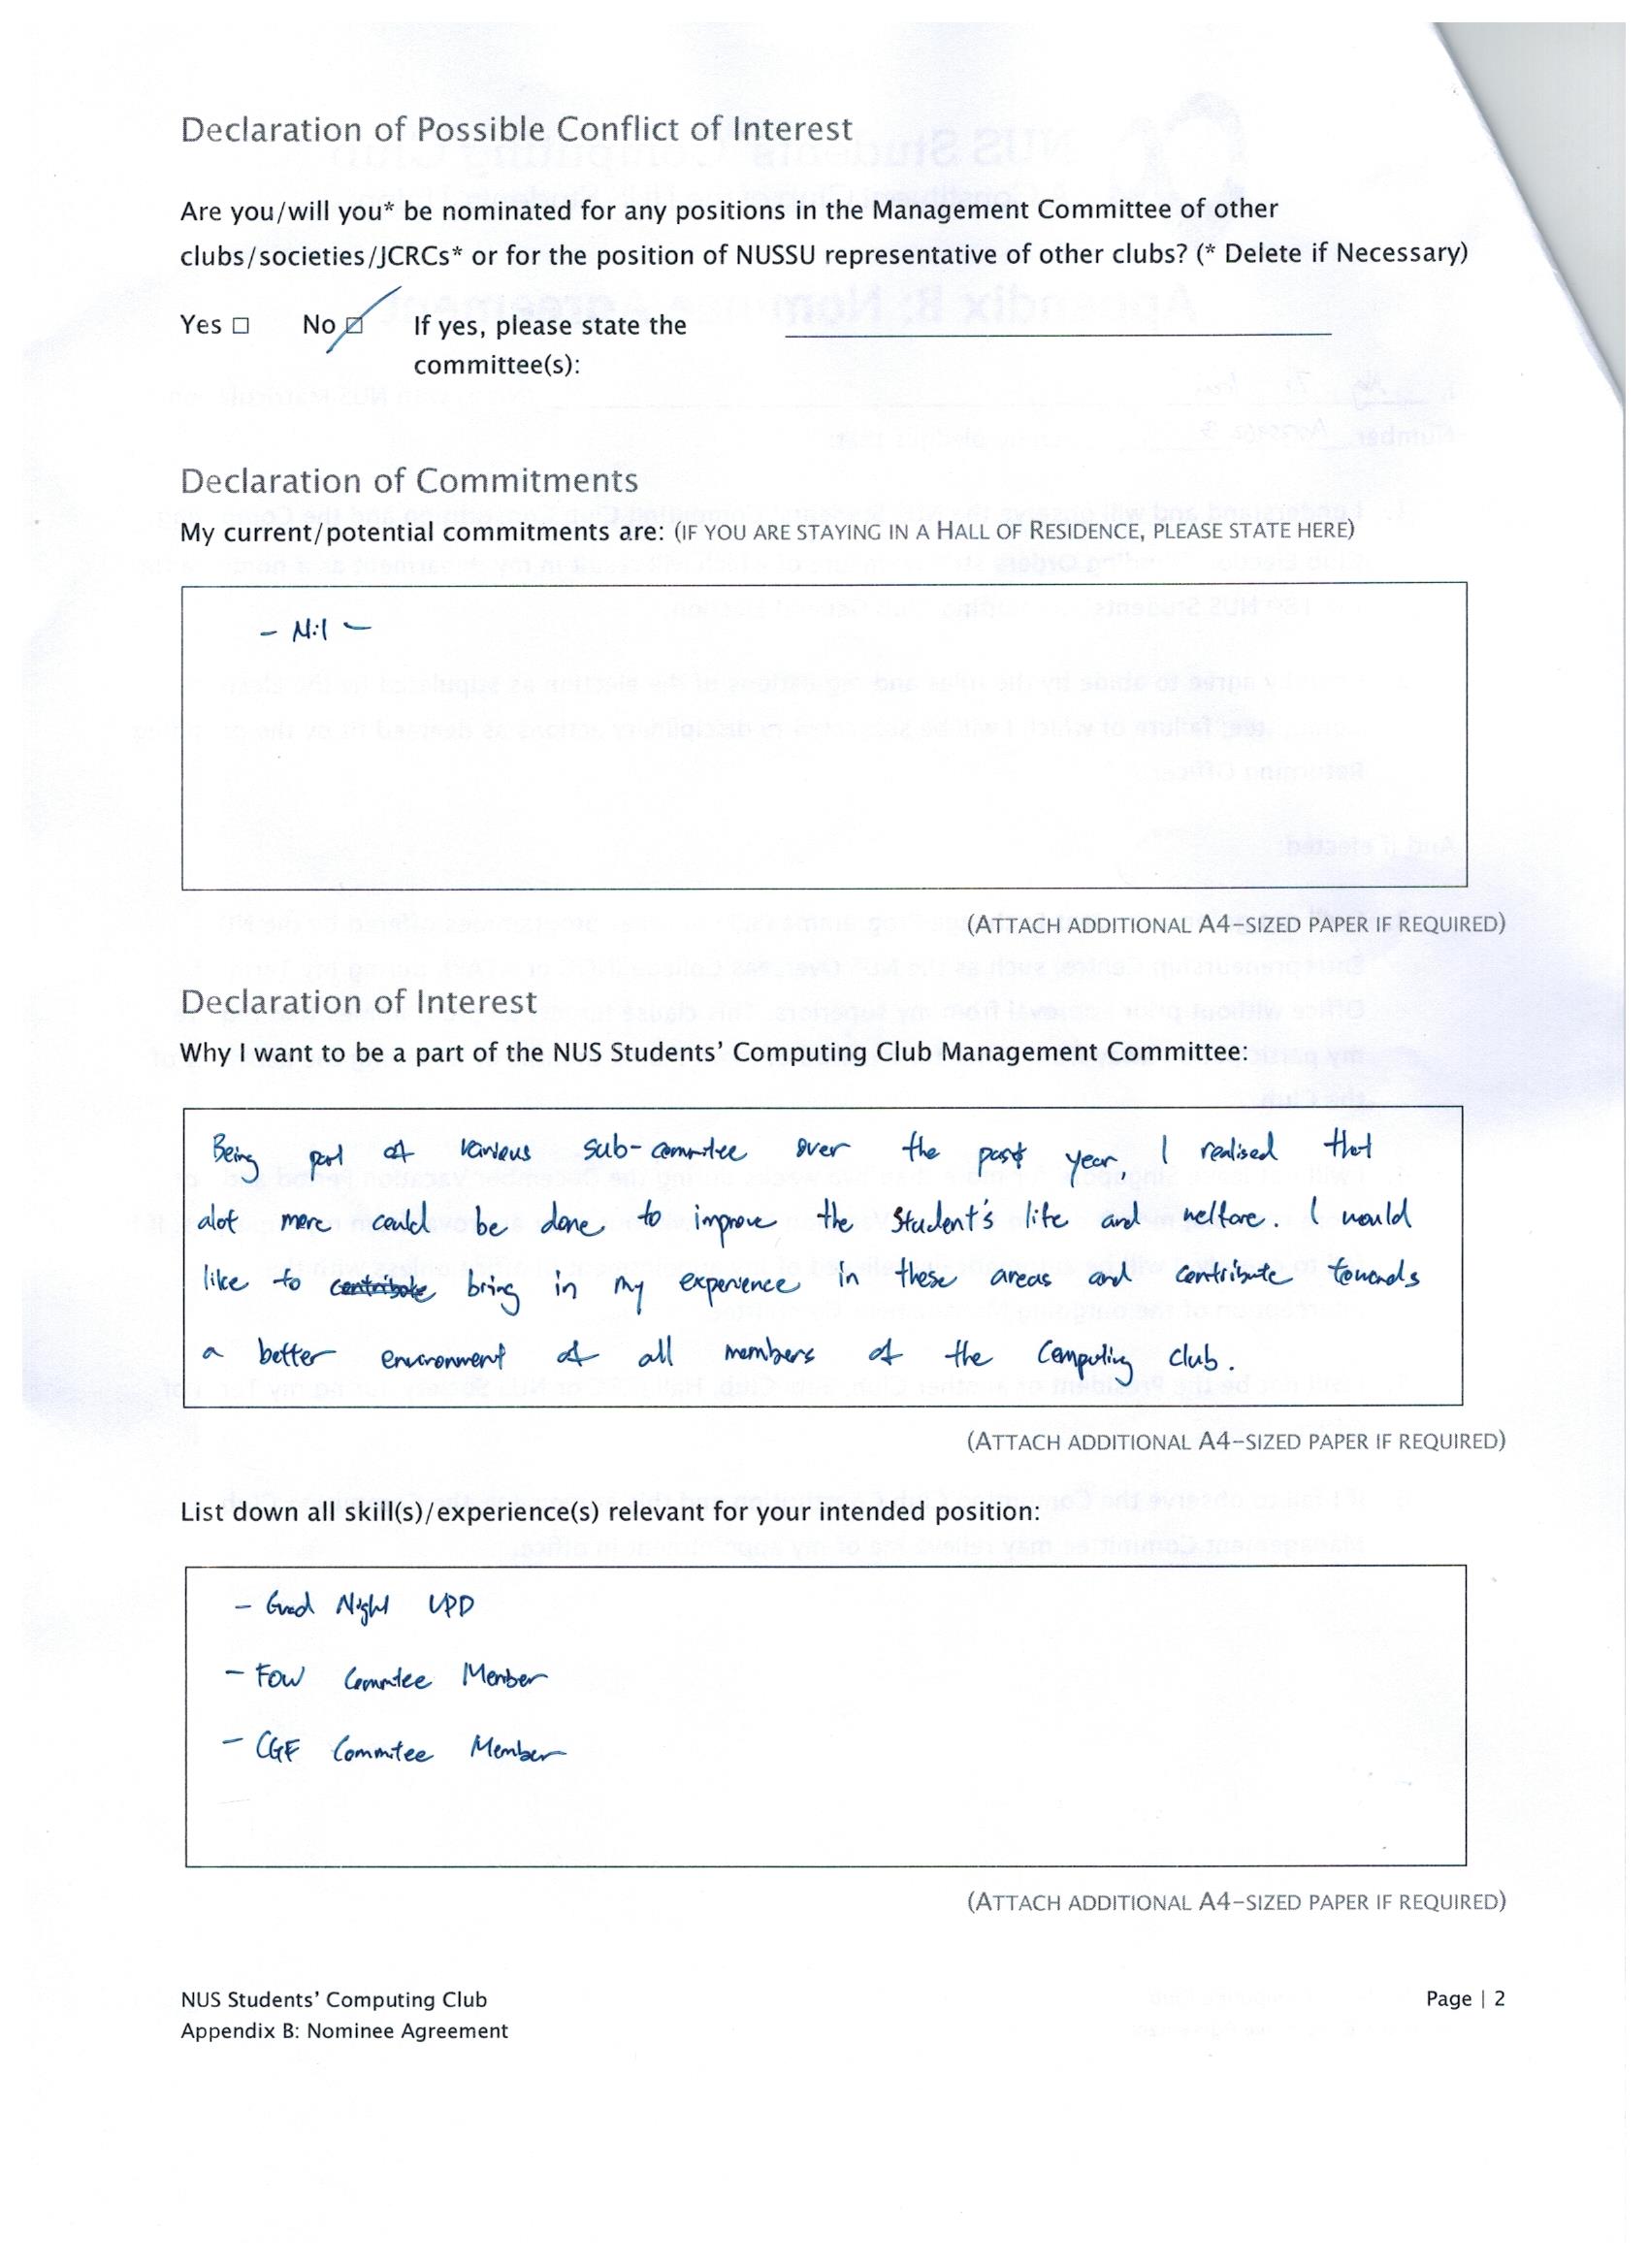 Declaration of Possible Conflict of Interest
Are you/will you* be nominated for any positions in the Management Committee of other
clubs/societies/JCRCs* or for the position of NUSSU representative of other clubs? (* Delete if Necessary)
Yes □ No □ If yes, please state the
committee(s):
Declaration of Commitments
My current/potential commitments are: (IF YOU ARE STAYING IN A HALL OF RESIDENCE, PLEASE STATE HERE)
- Nil -
(ATTACH ADDITIONAL A4-SIZED PAPER IF REQUIRED)
Declaration of Interest
Why I want to be a part of the NUS Students' Computing Club Management Committee:
Being part of various sub-commitee over the past year, I realised that
alot more could be done to improve the student's life and welfare. I would
like to contribute bring in my experience in these areas and contribute towards
a better environment of all members of the Computing club.
(ATTACH ADDITIONAL A4-SIZED PAPER IF REQUIRED)
List down all skill(s)/experience(s) relevant for your intended position:
- Night VPD
- FOW Commitee Member
- CGF Commitee Member
(ATTACH ADDITIONAL A4-SIZED PAPER IF REQUIRED)
NUS Students' Computing Club Page | 2
Appendix B: Nominee Agreement